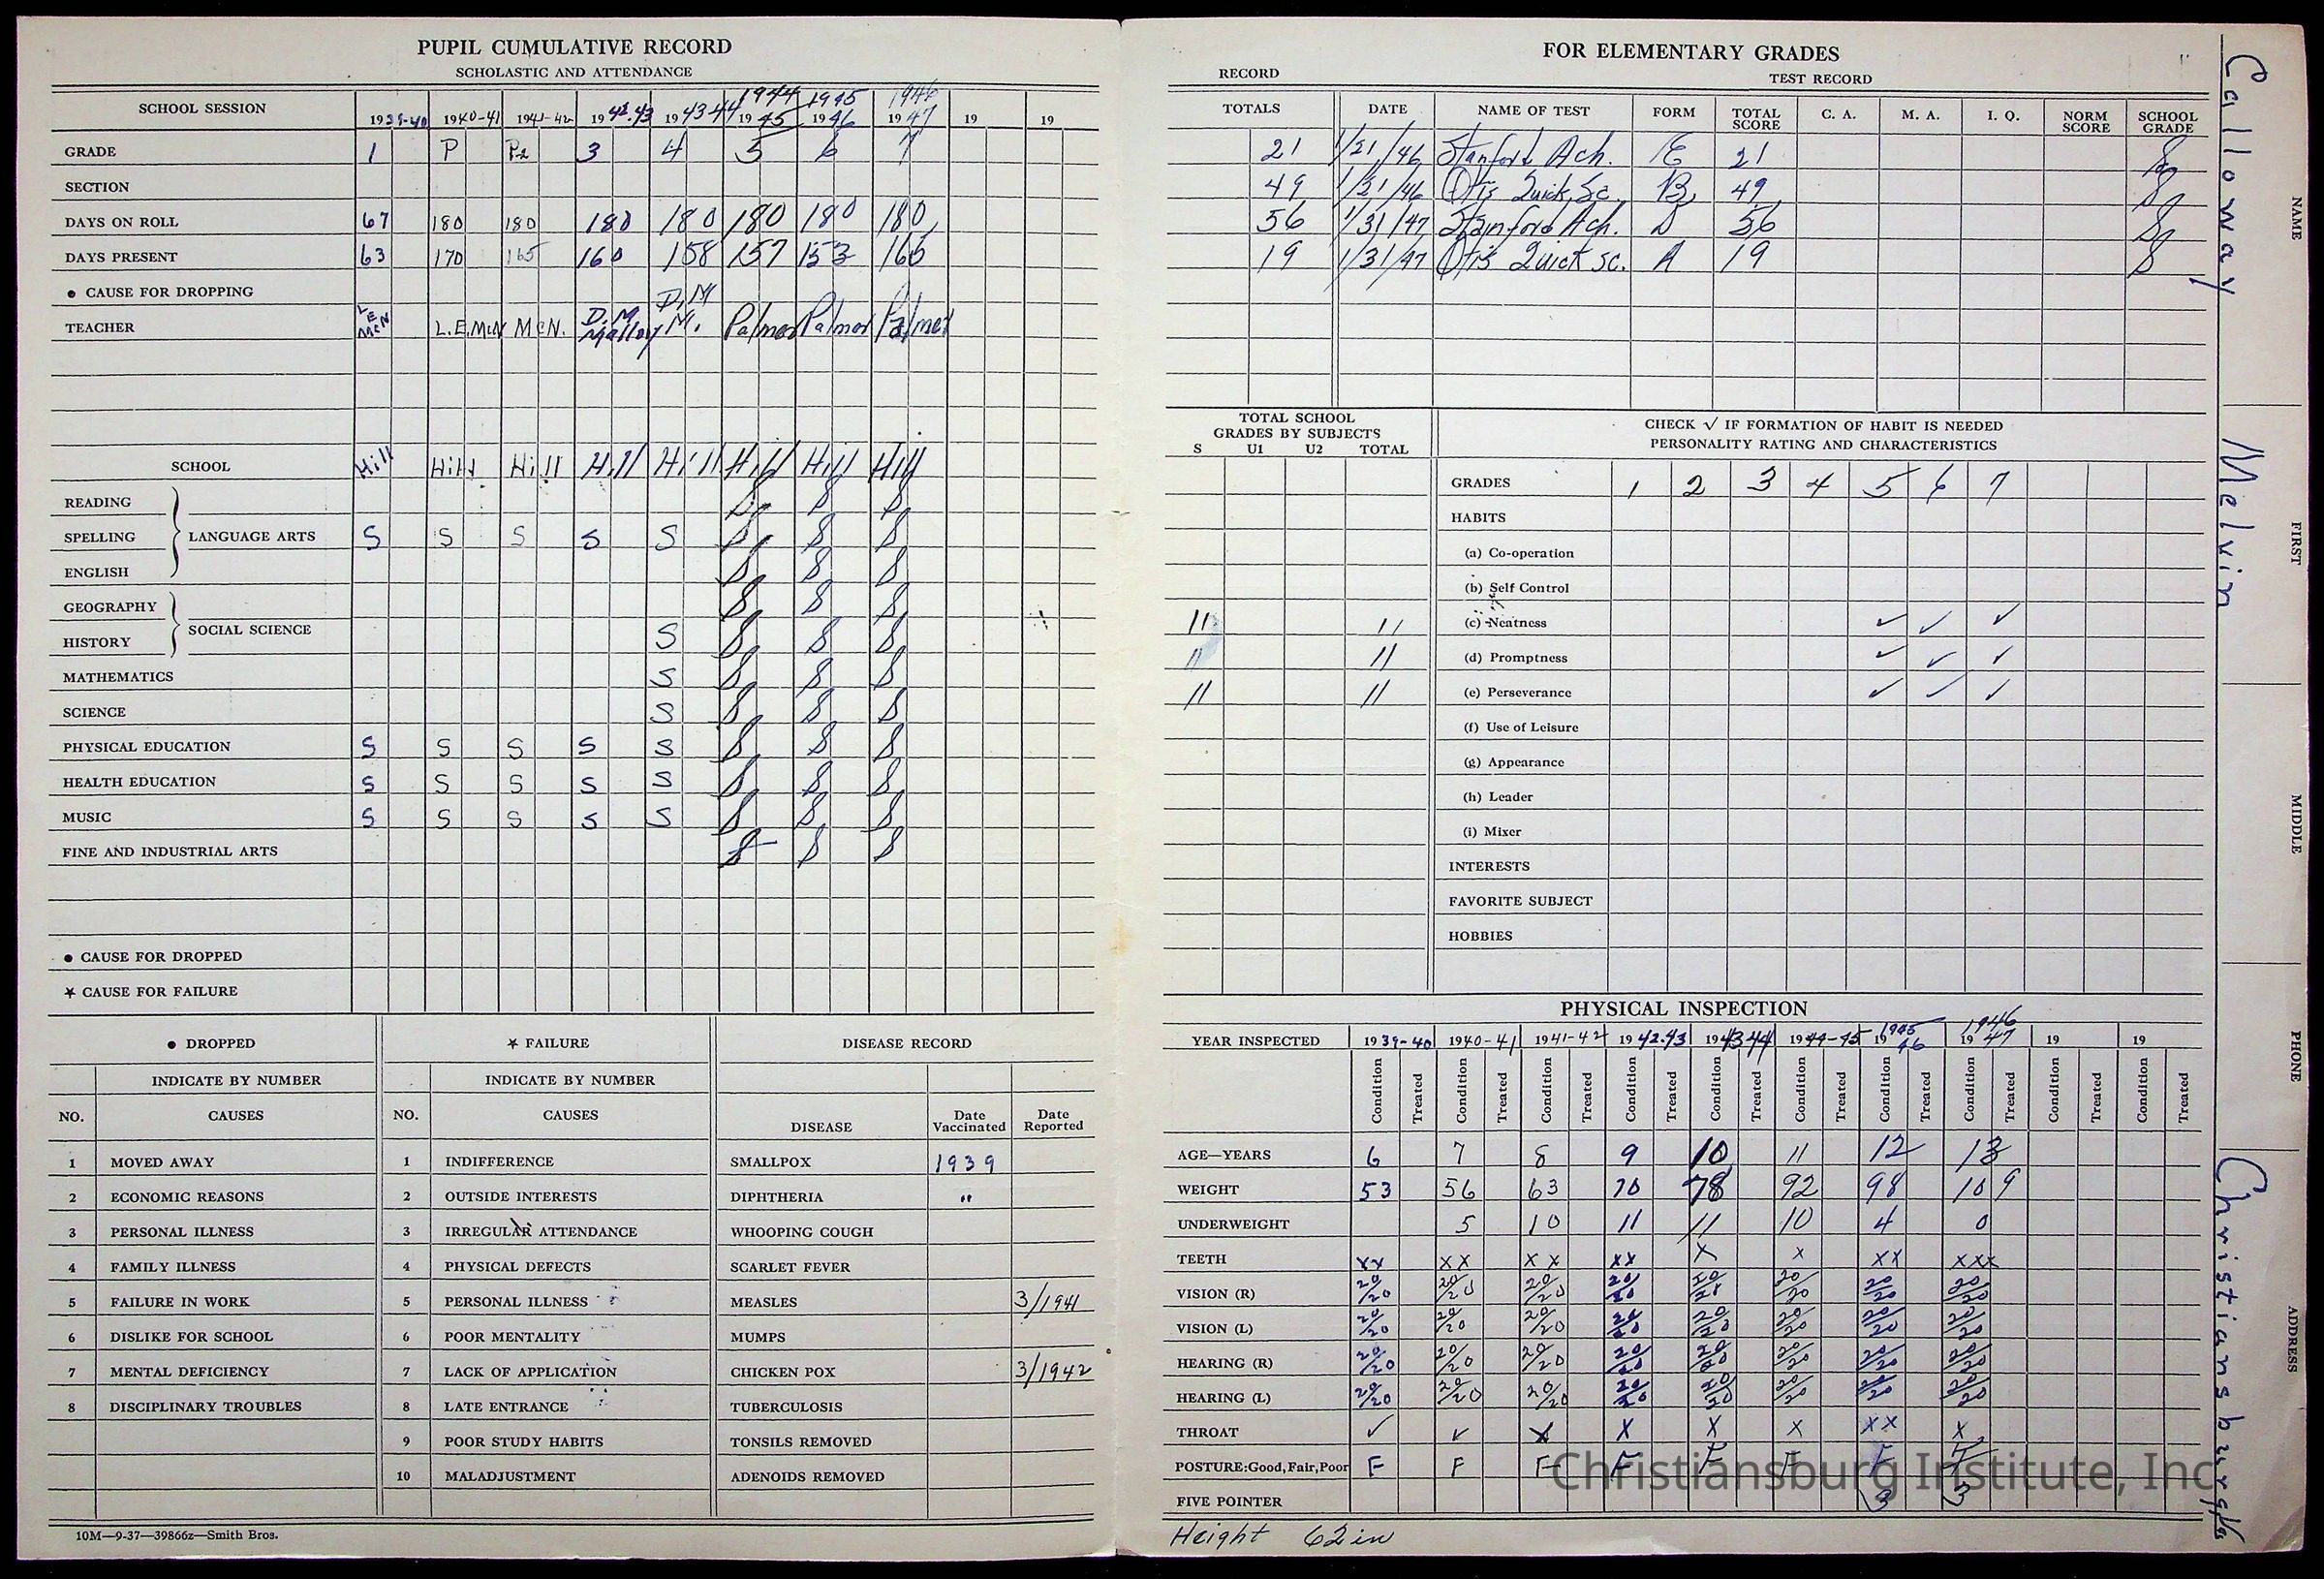 PUPIL CUMULATIVE RECORD
SCHOLASTIC AND ATTENDANCE
SCHOOL SESSION 1939-40 1940-41 1941-42 1942-43 1943-44 1944 1945 1945 1946 1946 1947 19 19
GRADE 1 P P2 3 4 5 6 7
SECTION
DAYS ON ROLL 67 180 180 180 180 180 180 180
DAYS PRESENT 63 170 165 160 158 157 153 165
● CAUSE FOR DROPPING
TEACHER L E McN L.E.McN McN. D.M. Mallory D,M M. Palmer Palmer Palmer
SCHOOL Hill Hill Hill Hill Hill Hill Hill Hill
READING S S S
SPELLING LANGUAGE ARTS S S S S S S S S
ENGLISH S S S
GEOGRAPHY S S S
HISTORY SOCIAL SCIENCE S S S S
MATHEMATICS S S S S
SCIENCE S S S S
PHYSICAL EDUCATION S S S S S S S S
HEALTH EDUCATION S S S S S S S S
MUSIC S S S S S S S S
FINE AND INDUSTRIAL ARTS S S S
● CAUSE FOR DROPPED
★ CAUSE FOR FAILURE
● DROPPED ★ FAILURE DISEASE RECORD
INDICATE BY NUMBER INDICATE BY NUMBER
NO. CAUSES NO. CAUSES DISEASE Date Vaccinated Date Reported
1 MOVED AWAY 1 INDIFFERENCE SMALLPOX 1939
2 ECONOMIC REASONS 2 OUTSIDE INTERESTS DIPHTHERIA "
3 PERSONAL ILLNESS 3 IRREGULAR ATTENDANCE WHOOPING COUGH
4 FAMILY ILLNESS 4 PHYSICAL DEFECTS SCARLET FEVER
5 FAILURE IN WORK 5 PERSONAL ILLNESS MEASLES 3/1941
6 DISLIKE FOR SCHOOL 6 POOR MENTALITY MUMPS
7 MENTAL DEFICIENCY 7 LACK OF APPLICATION CHICKEN POX 3/1942
8 DISCIPLINARY TROUBLES 8 LATE ENTRANCE TUBERCULOSIS
9 POOR STUDY HABITS TONSILS REMOVED
10 MALADJUSTMENT ADENOIDS REMOVED
10M—9-37—39866z—Smith Bros.
FOR ELEMENTARY GRADES
RECORD TEST RECORD
TOTALS DATE NAME OF TEST FORM TOTAL SCORE C. A. M. A. I. Q. NORM SCORE SCHOOL GRADE
21 1/21/46 Stanford Ach. E 21
49 1/21/46 Otis Quick Sc. B 49
56 1/31/47 Stanford Ach. D 56
19 1/31/47 Otis Quick Sc. A 19
TOTAL SCHOOL GRADES BY SUBJECTS
S U1 U2 TOTAL
11 11
11 11
11 11
CHECK √ IF FORMATION OF HABIT IS NEEDED
PERSONALITY RATING AND CHARACTERISTICS
GRADES 1 2 3 4 5 6 7
HABITS
(a) Co-operation
(b) Self Control
(c) Neatness ✓ ✓ ✓
(d) Promptness ✓ ✓ ✓
(e) Perseverance ✓ ✓ ✓
(f) Use of Leisure
(g) Appearance
(h) Leader
(i) Mixer
INTERESTS
FAVORITE SUBJECT
HOBBIES
PHYSICAL INSPECTION
YEAR INSPECTED 1939-40 1940-41 1941-42 1942-43 1943-44 1944-45 1945 1946 1946 1947 19 19
Condition Treated Condition Treated Condition Treated Condition Treated Condition Treated Condition Treated Condition Treated Condition Treated Condition Treated Condition Treated
AGE—YEARS 6 7 8 9 10 11 12 13
WEIGHT 53 56 63 70 78 92 98 109
UNDERWEIGHT 5 10 11 11 10 4 0
TEETH xx xx xx xx x x xx xxx
VISION (R) 20/20 20/20 20/20 20/20 20/20 20/20 20/20 20/20
VISION (L) 20/20 20/20 20/20 20/20 20/20 20/20 20/20 20/20
HEARING (R) 20/20 20/20 20/20 20/20 20/20 20/20 20/20 20/20
HEARING (L) 20/20 20/20 20/20 20/20 20/20 20/20 20/20 20/20
THROAT ✓ ✓ x x x x xx x
POSTURE:Good,Fair,Poor F F F F F F F F
FIVE POINTER 3 3
Height 62 in
Christiansburg Institute, Inc.
NAME Calloway
FIRST Melvin
MIDDLE
PHONE
ADDRESS Christiansburg Va